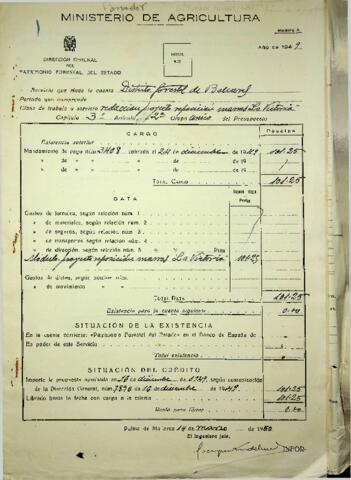 MINISTERIO DE AGRICULTURA
Modelo A.
Año de 1949.
DIRECCION GENERAL
DEL
PATRIMONIO FORESTAL DEL ESTADO
Servicio que rinde la cuenta Distrito forestal de Baleares
Período que comprende
Clase de trabajo o servicio redacción proyecto reposición marras "La Victoria"
Capítulo 3º Artículo 2º Grupo único del Presupuesto
CARGO
Pesetas
Existencia anterior
Mandamiento de pago núm. 3468 cobrado el 24 de diciembre de 1949 101-25
» » de » » de » de 19
» » de » » de » de 19
TOTAL CARGO 101-25
DATA
Pesetas
Gastos de jornales, según relación núm. 1
» de materiales, según relación núm. 2
» de seguros, según relación núm. 3
» de transportes según relación núm. 4
» de dirección, según relación núm. 5
proyecto reposición marras "La Victoria" 101-25
» de movimiento
TOTAL DATA 101-25
Existencia para la cuenta siguiente 0.00
SITUACIÓN DE LA EXISTENCIA
En la cuenta corriente: «Patrimonio Forestal del Estado» en el Banco de España de
En poder de este Servicio
Total existencia
SITUACIÓN DEL CRÉDITO
Importe la propuesta aprobada en de diciembre de 1949, según comunicación
de la Dirección General, de diciembre de 1949 101-25
Librado hasta la fecha con cargo a la misma 101-25
Resta para librar 0.00
Palma de Mallorca 14 de marzo de 1950
El Ingeniero Jefe,